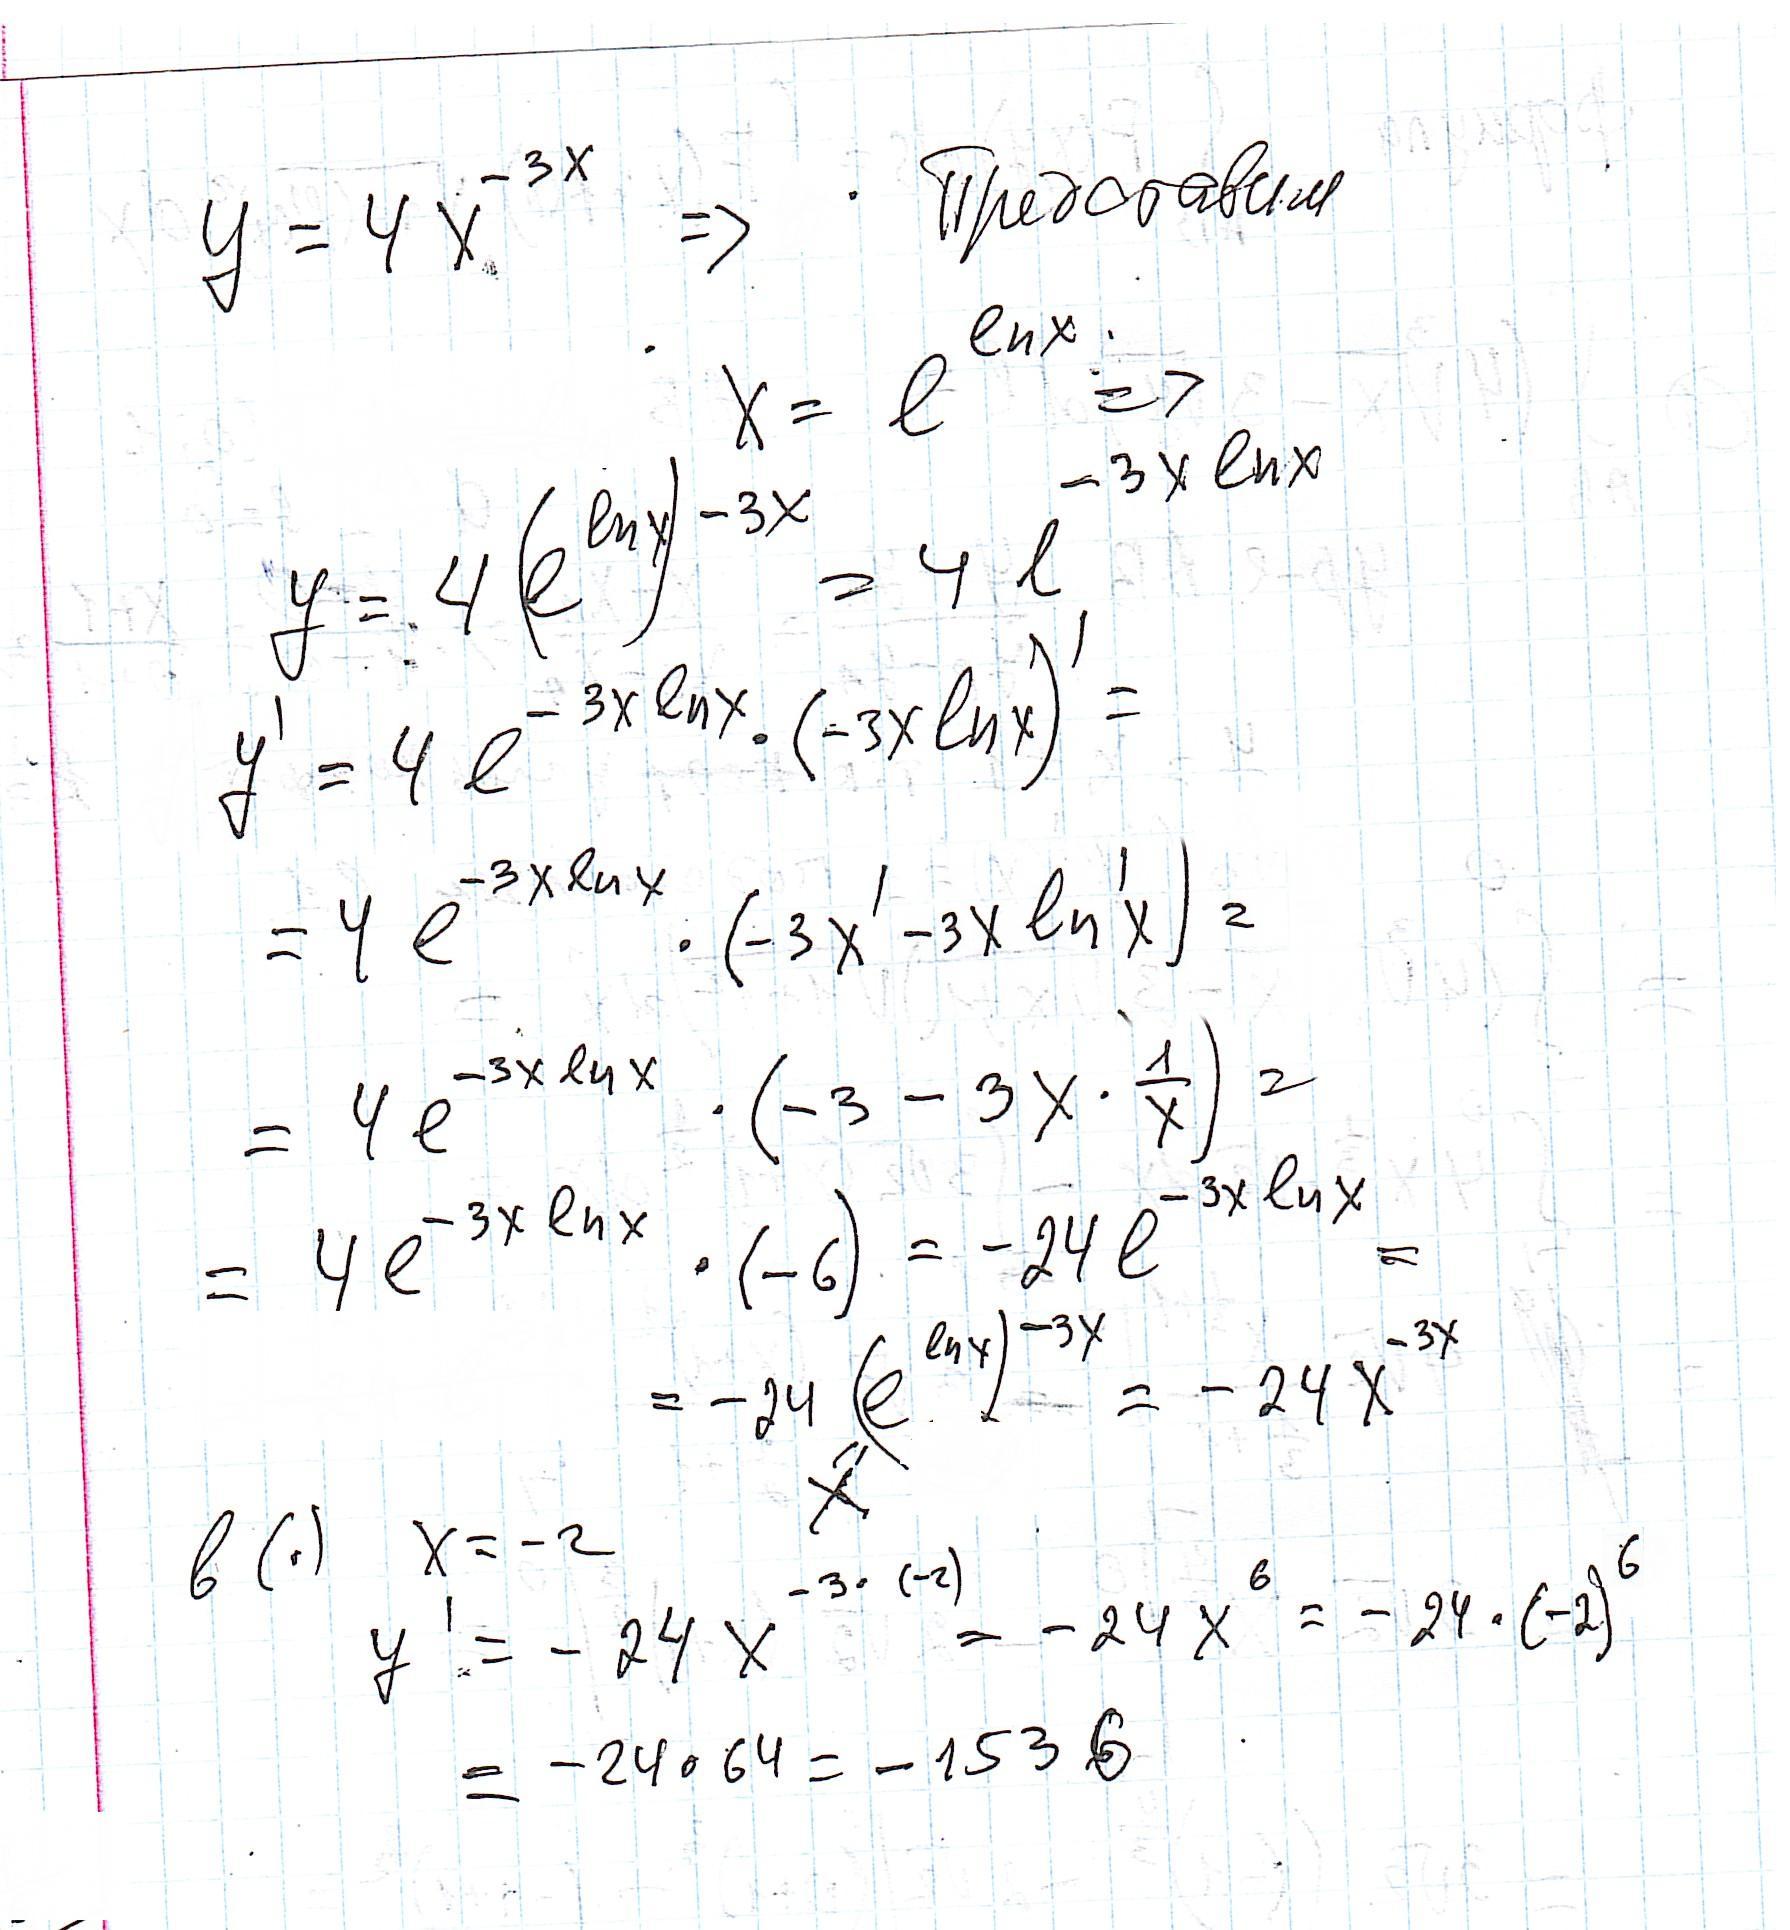 y = 4x^{-3x} => Представим
x = e^{lnx} =>
y = 4(e^{lnx})^{-3x} = 4e^{-3x lnx}
y' = 4e^{-3x lnx} · (-3x lnx)' =
= 4e^{-3x lnx} · (-3x' - 3x ln'x) =
= 4e^{-3x lnx} · (-3 - 3x · 1/x) =
= 4e^{-3x lnx} · (-6) = -24e^{-3x lnx} =
= -24(e^{lnx})^{-3x} = -24x^{-3x}
x
в (·) x = -2
y' = -24x^{-3·(-2)} = -24x^6 = -24·(-2)^6
= -24·64 = -1536